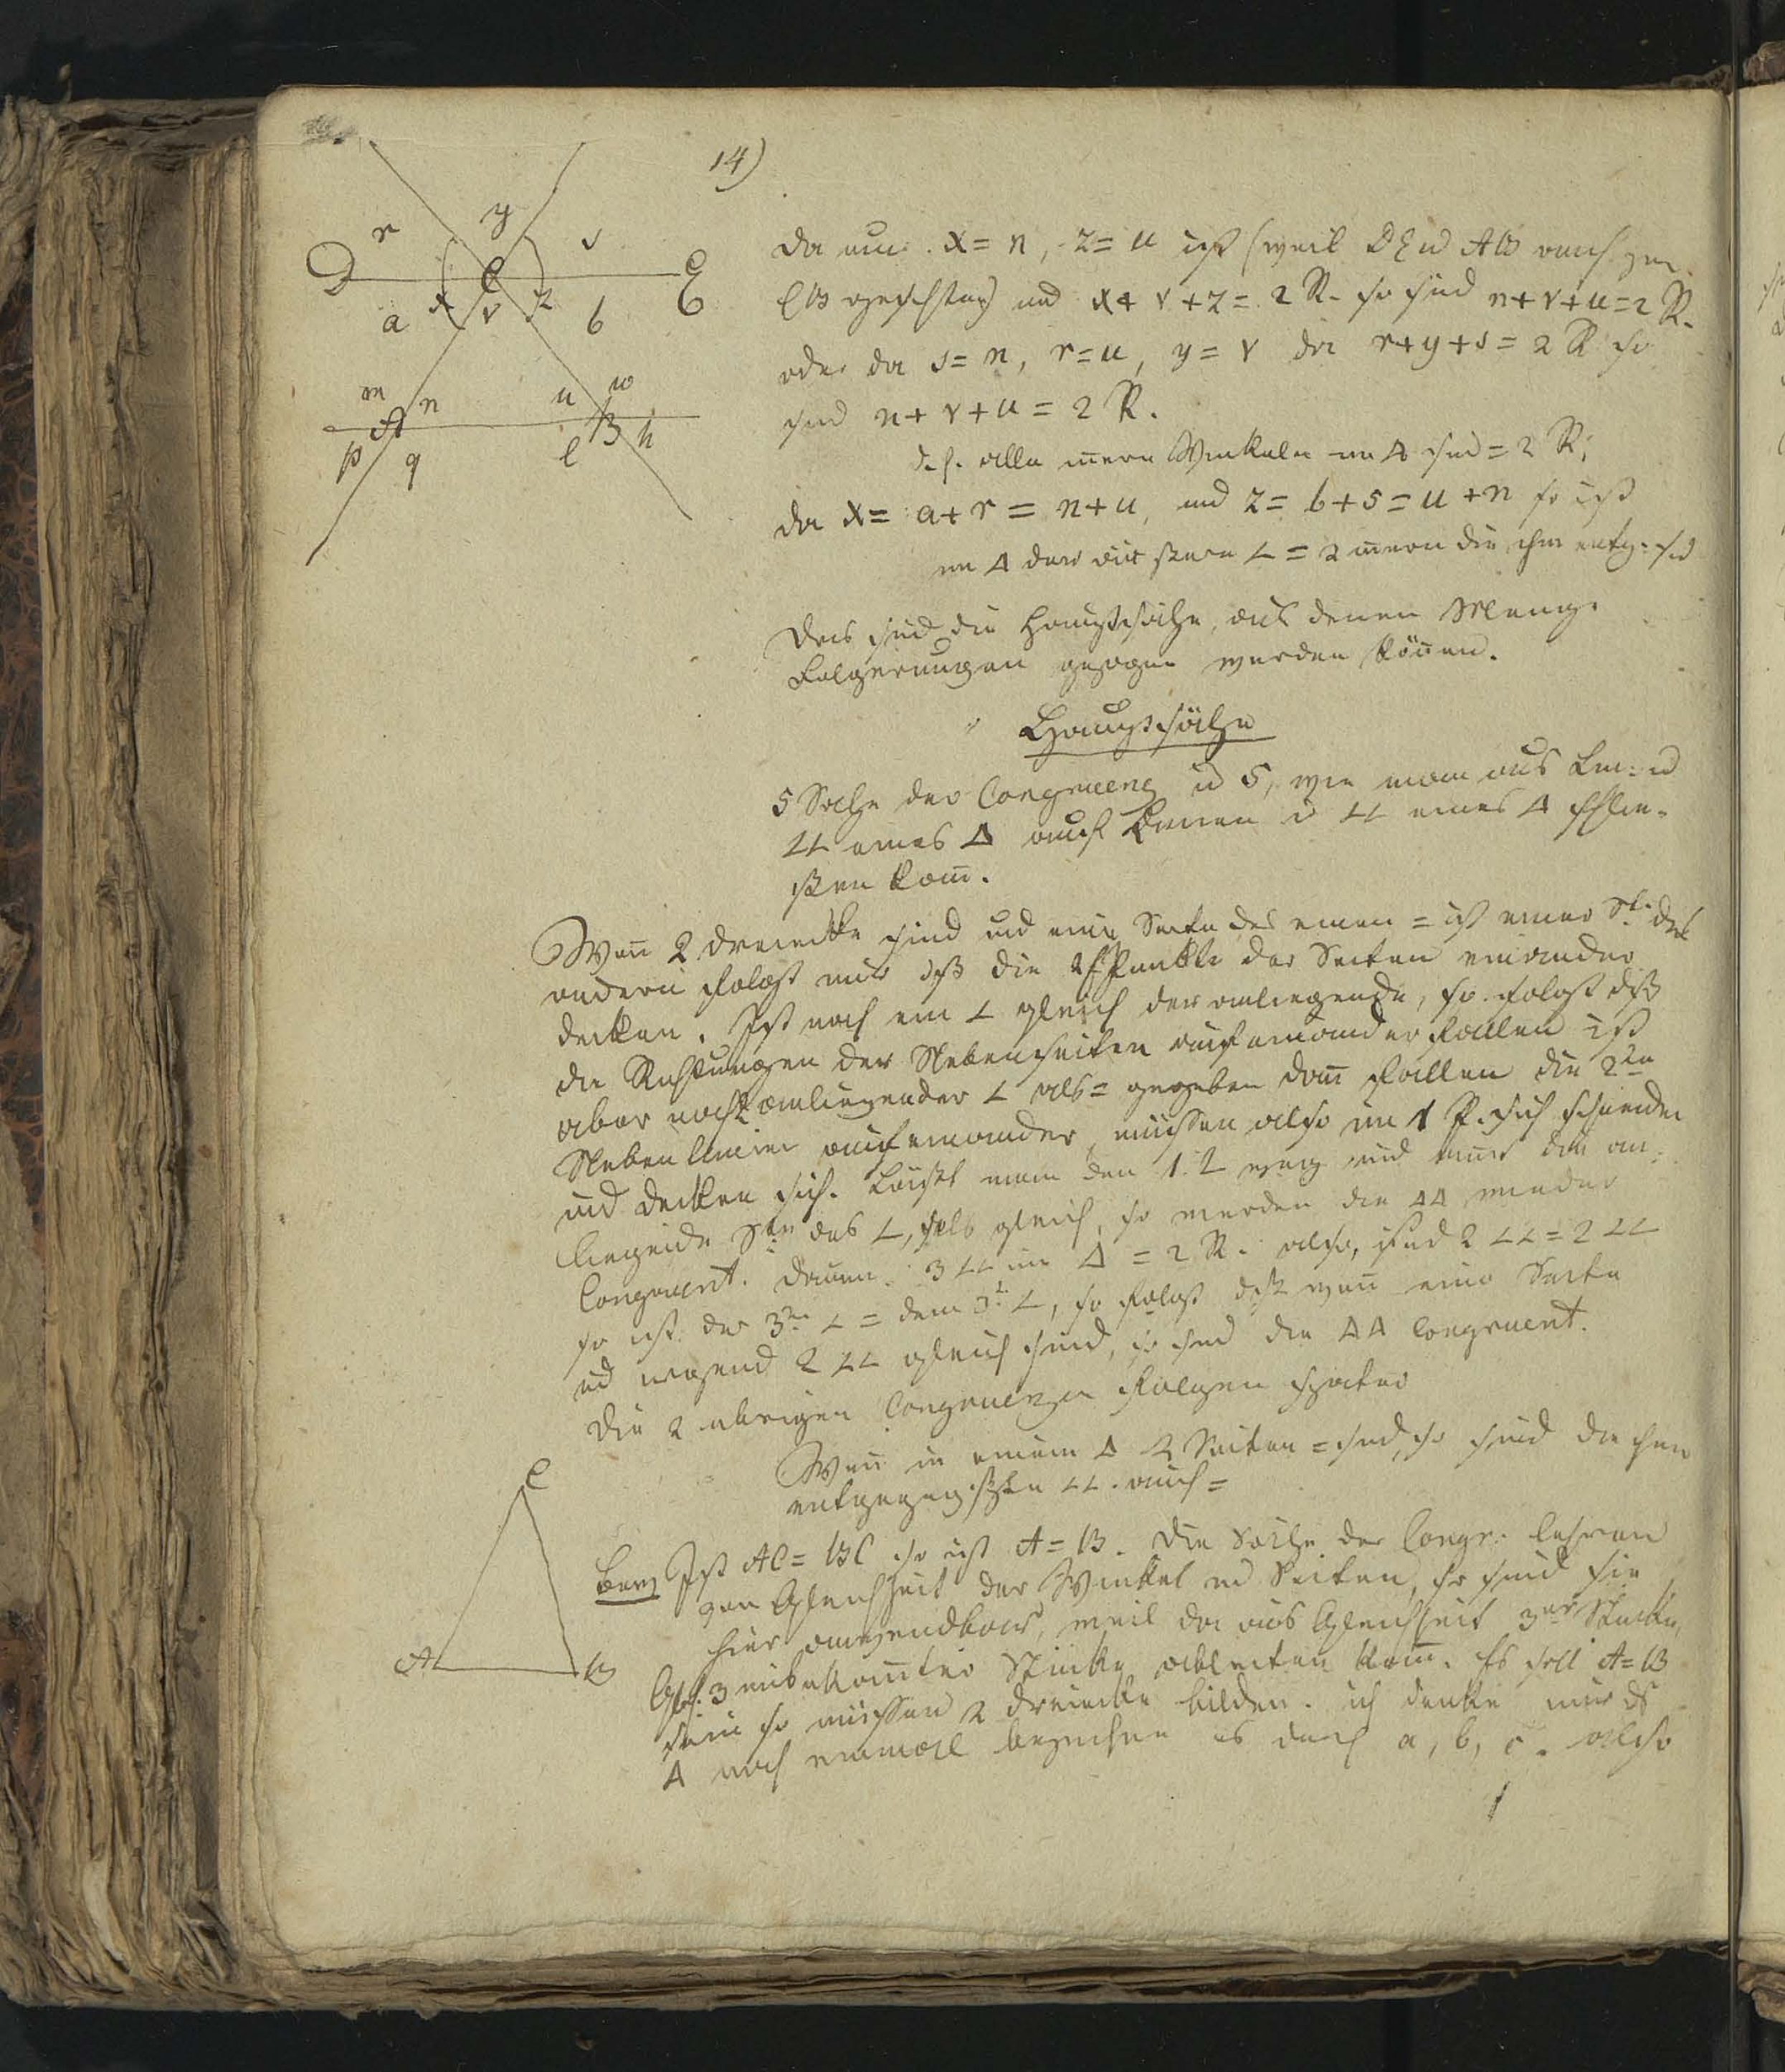 14)
r y s
D C E
a x v z b
m n u w
A B
p q l h
da nun x = n, z = u ist (weil DE u AB
und x + v + z = 2 R. so sind n + v + u = 2 R.
oder da s = n, r = u, y = v die r + y + s = 2 R so
sind n + v + u = 2 R.
d. h. alle innern Winkel im Δ sind = 2 R;
da x = a + r = n + u, und z = b + s = u + n so ist
im Δ der äußere ∠ = 2 innern die ihm entg. sd
Das sind die Hauptsätze, aus denen Menge
Folgerungen gezogen werden können.
Hauptsätze
5 Sätze der Congruenz u 5, wie man aus Lin: u
∠∠ eines Δ auf Linien u ∠∠ eines Δ schlie-
ßen kan̄.
Wen̄ 2 Dreiecke sind und eine Seite des einen = ist einer St. des
andern folgt nur dß die Punkte der Seiten einander
decken. Ist noch ein ∠ gleich der anliegende, so folgt dß
die Richtungen der Nebenseiten auf einander fallen ist
aber noch anliegender ∠ als = gegeben dan̄ fallen die 2
Nebenlinien auf einander, müssen also in 1 P. sich schneiden
und decken sich. Läßt man den 1. ∠ weg und nim̄t die an-
liegende des ∠, gleich, so werden die ΔΔ wieder
Congruent. 3 ∠∠ im Δ = 2 R. also, sind 2 ∠∠ = 2 ∠∠
so ist der 3te ∠ = dem 3t ∠, so folgt dß wen̄ eine Seite
ud irgend 2 ∠∠ gleich sind, so sind die ΔΔ Congruent.
Die 2 übrigen Congruenzen folgen später
Wen̄ in einem Δ 2 Seiten = sind, so sind die ihn
entgegengesetzten ∠∠ auch =
C
A B
Bew Ist AC = BC so ist A = B. Die Sätze der Congr: lehren
von Gleichheit der Winkel ud Seiten, so sind sie
hier anwendbar, weil da aus Gleichheit 3er Stücke,
3 unbekan̄ter Stücke ableiten kan̄. Es soll A = B
sein so müssen 2 Dreiecke bilden. ich denke mir ds
Δ noch einmal bezeichne es durch a, b, c. also